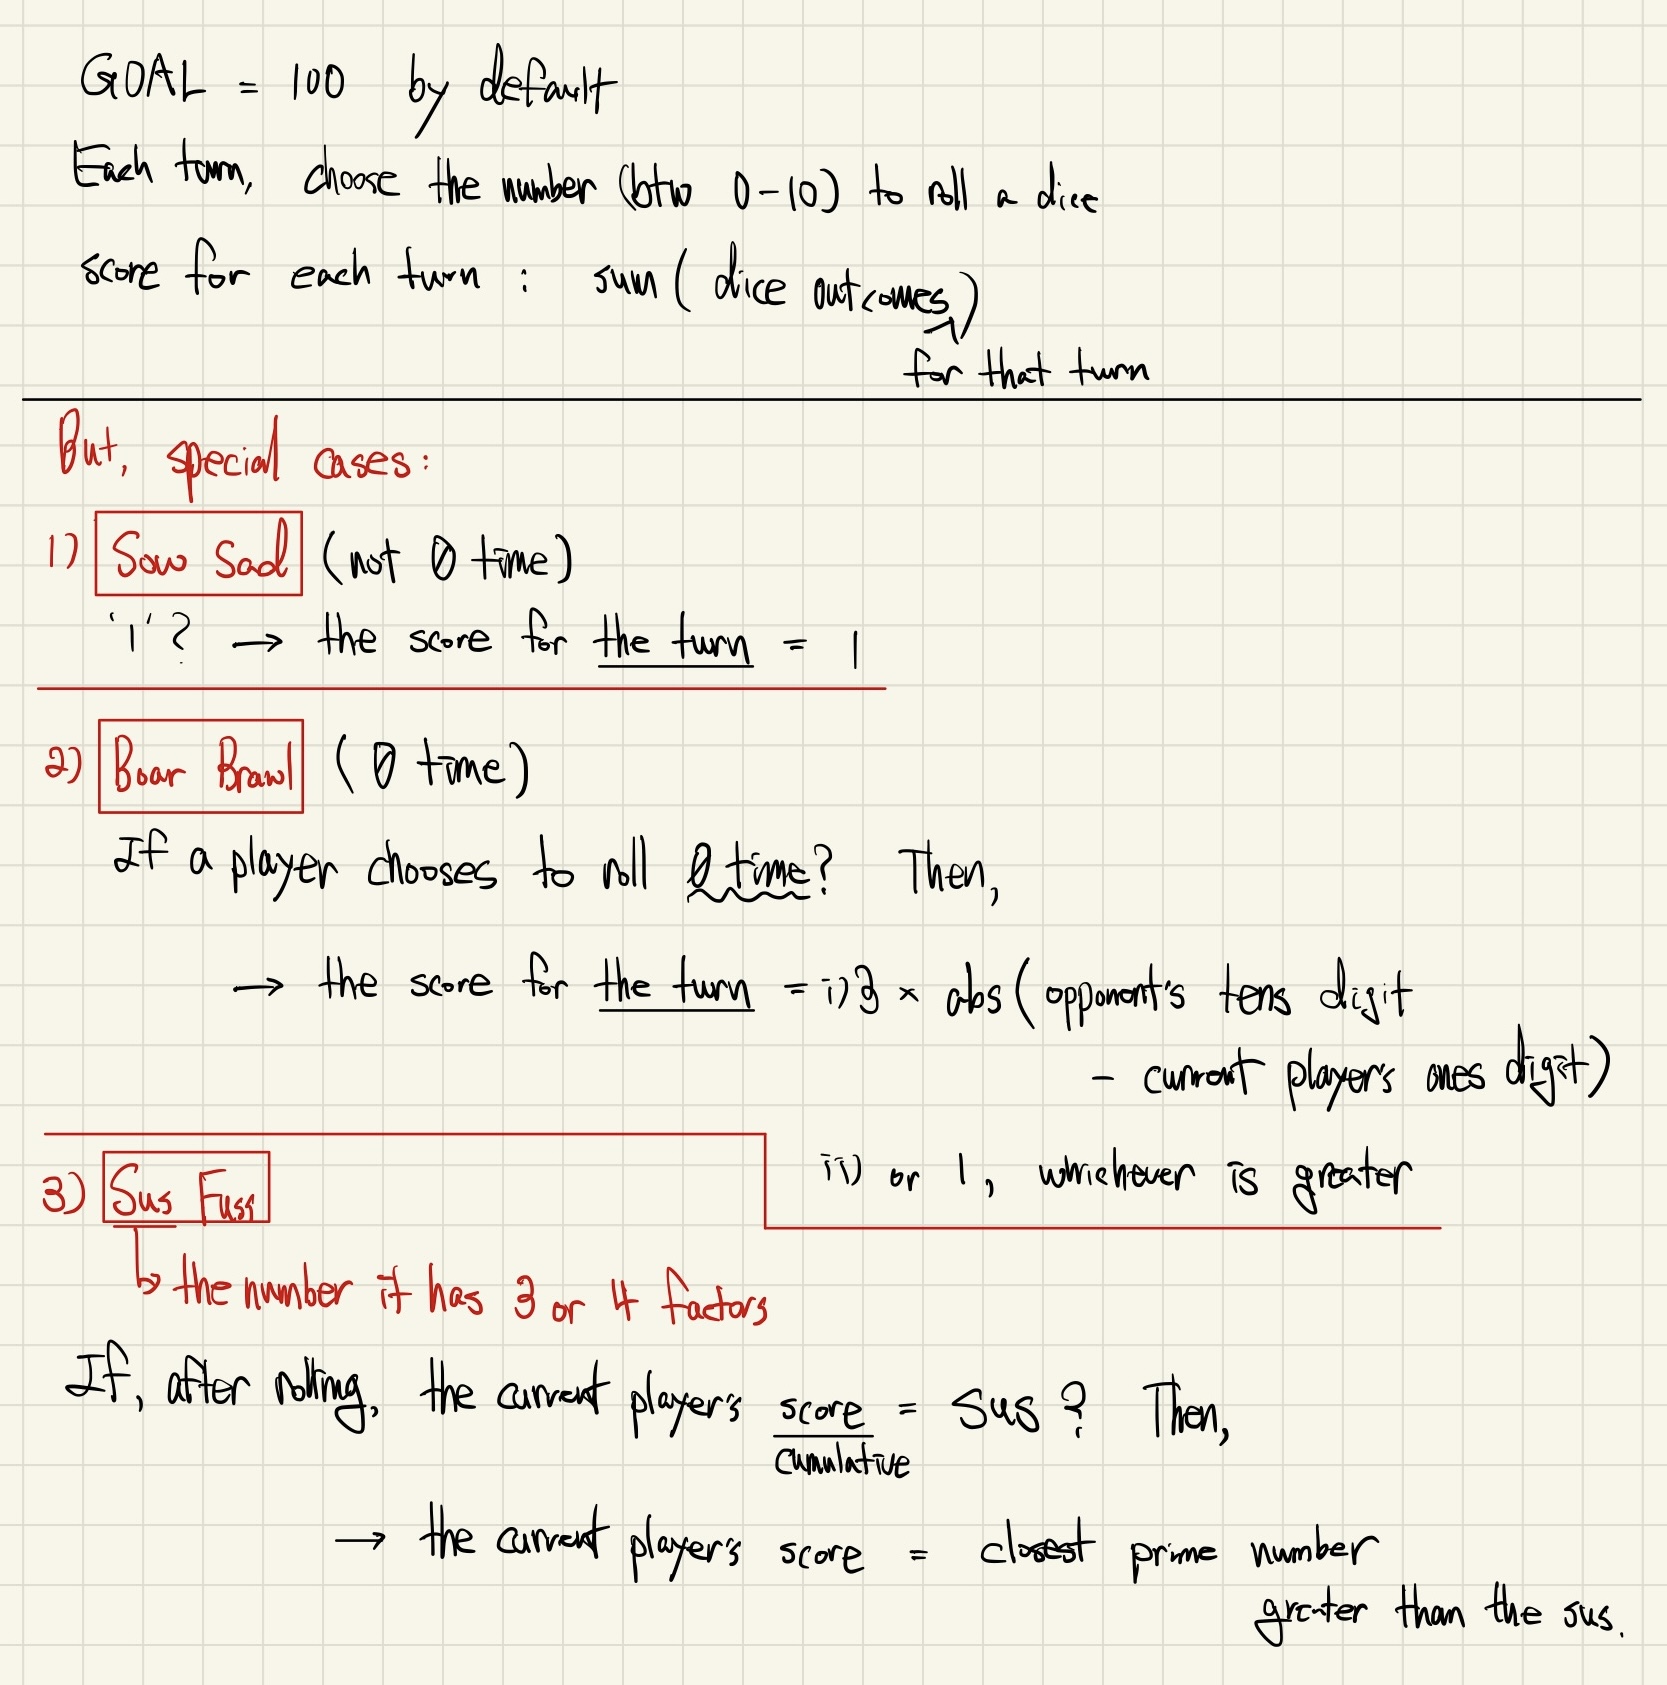 GOAL = 100 by default
Each turn, choose the number (btw 0-10) to roll a dice
score for each turn : sum( dice outcomes)
for that turn
But, special cases:
1) Sow Sad (not 0 time)
'1'? → the score for the turn = 1
2) Boar Brawl (0 time)
If a player chooses to roll 0 time? Then,
→ the score for the turn = i) 3 × abs(opponent's tens digit
- current player's ones digit)
ii) or 1, whichever is greater
3) Sus Fuss
↳ the number it has 3 or 4 factors
If, after rolling, the current player's score = sus? Then,
cumulative
→ the current player's score = closest prime number
greater than the sus.